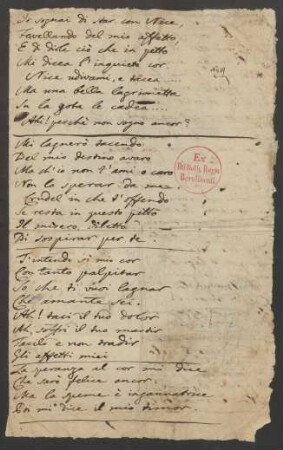 Io sognai di star con Nice,
Favellando del mio affetto,
E di dirle ciò che in petto
Mi dicea l'inquieto cor
Nice udivami, e tacea....
Ma una bella lagrimetta
Su la gota le cadea....
Ah! perchè non sogno ancor?
Mi lagnerò tacendo
Del mio destino avaro
Ma ch'io non t'ami o caro
Non lo sperar da me.
Crudel in che t'offendo
Se resta in questo petto
Il misero diletto
Di sospirar per te.
T'intendo si mio cor
Con tanto palpitar
So che ti vuoi lagnar
Che amante sei.
Ah! taci il tuo dolor
Ah, soffri il tuo martir
Tacilo e non tradir
Gli affetti miei
La speranza al cor mi dice
Che sarò felice ancor
Ma la speme è ingannatrice
Poi mi dice il mio timor
Ex
Biblioth. Regia
Berolinensi.